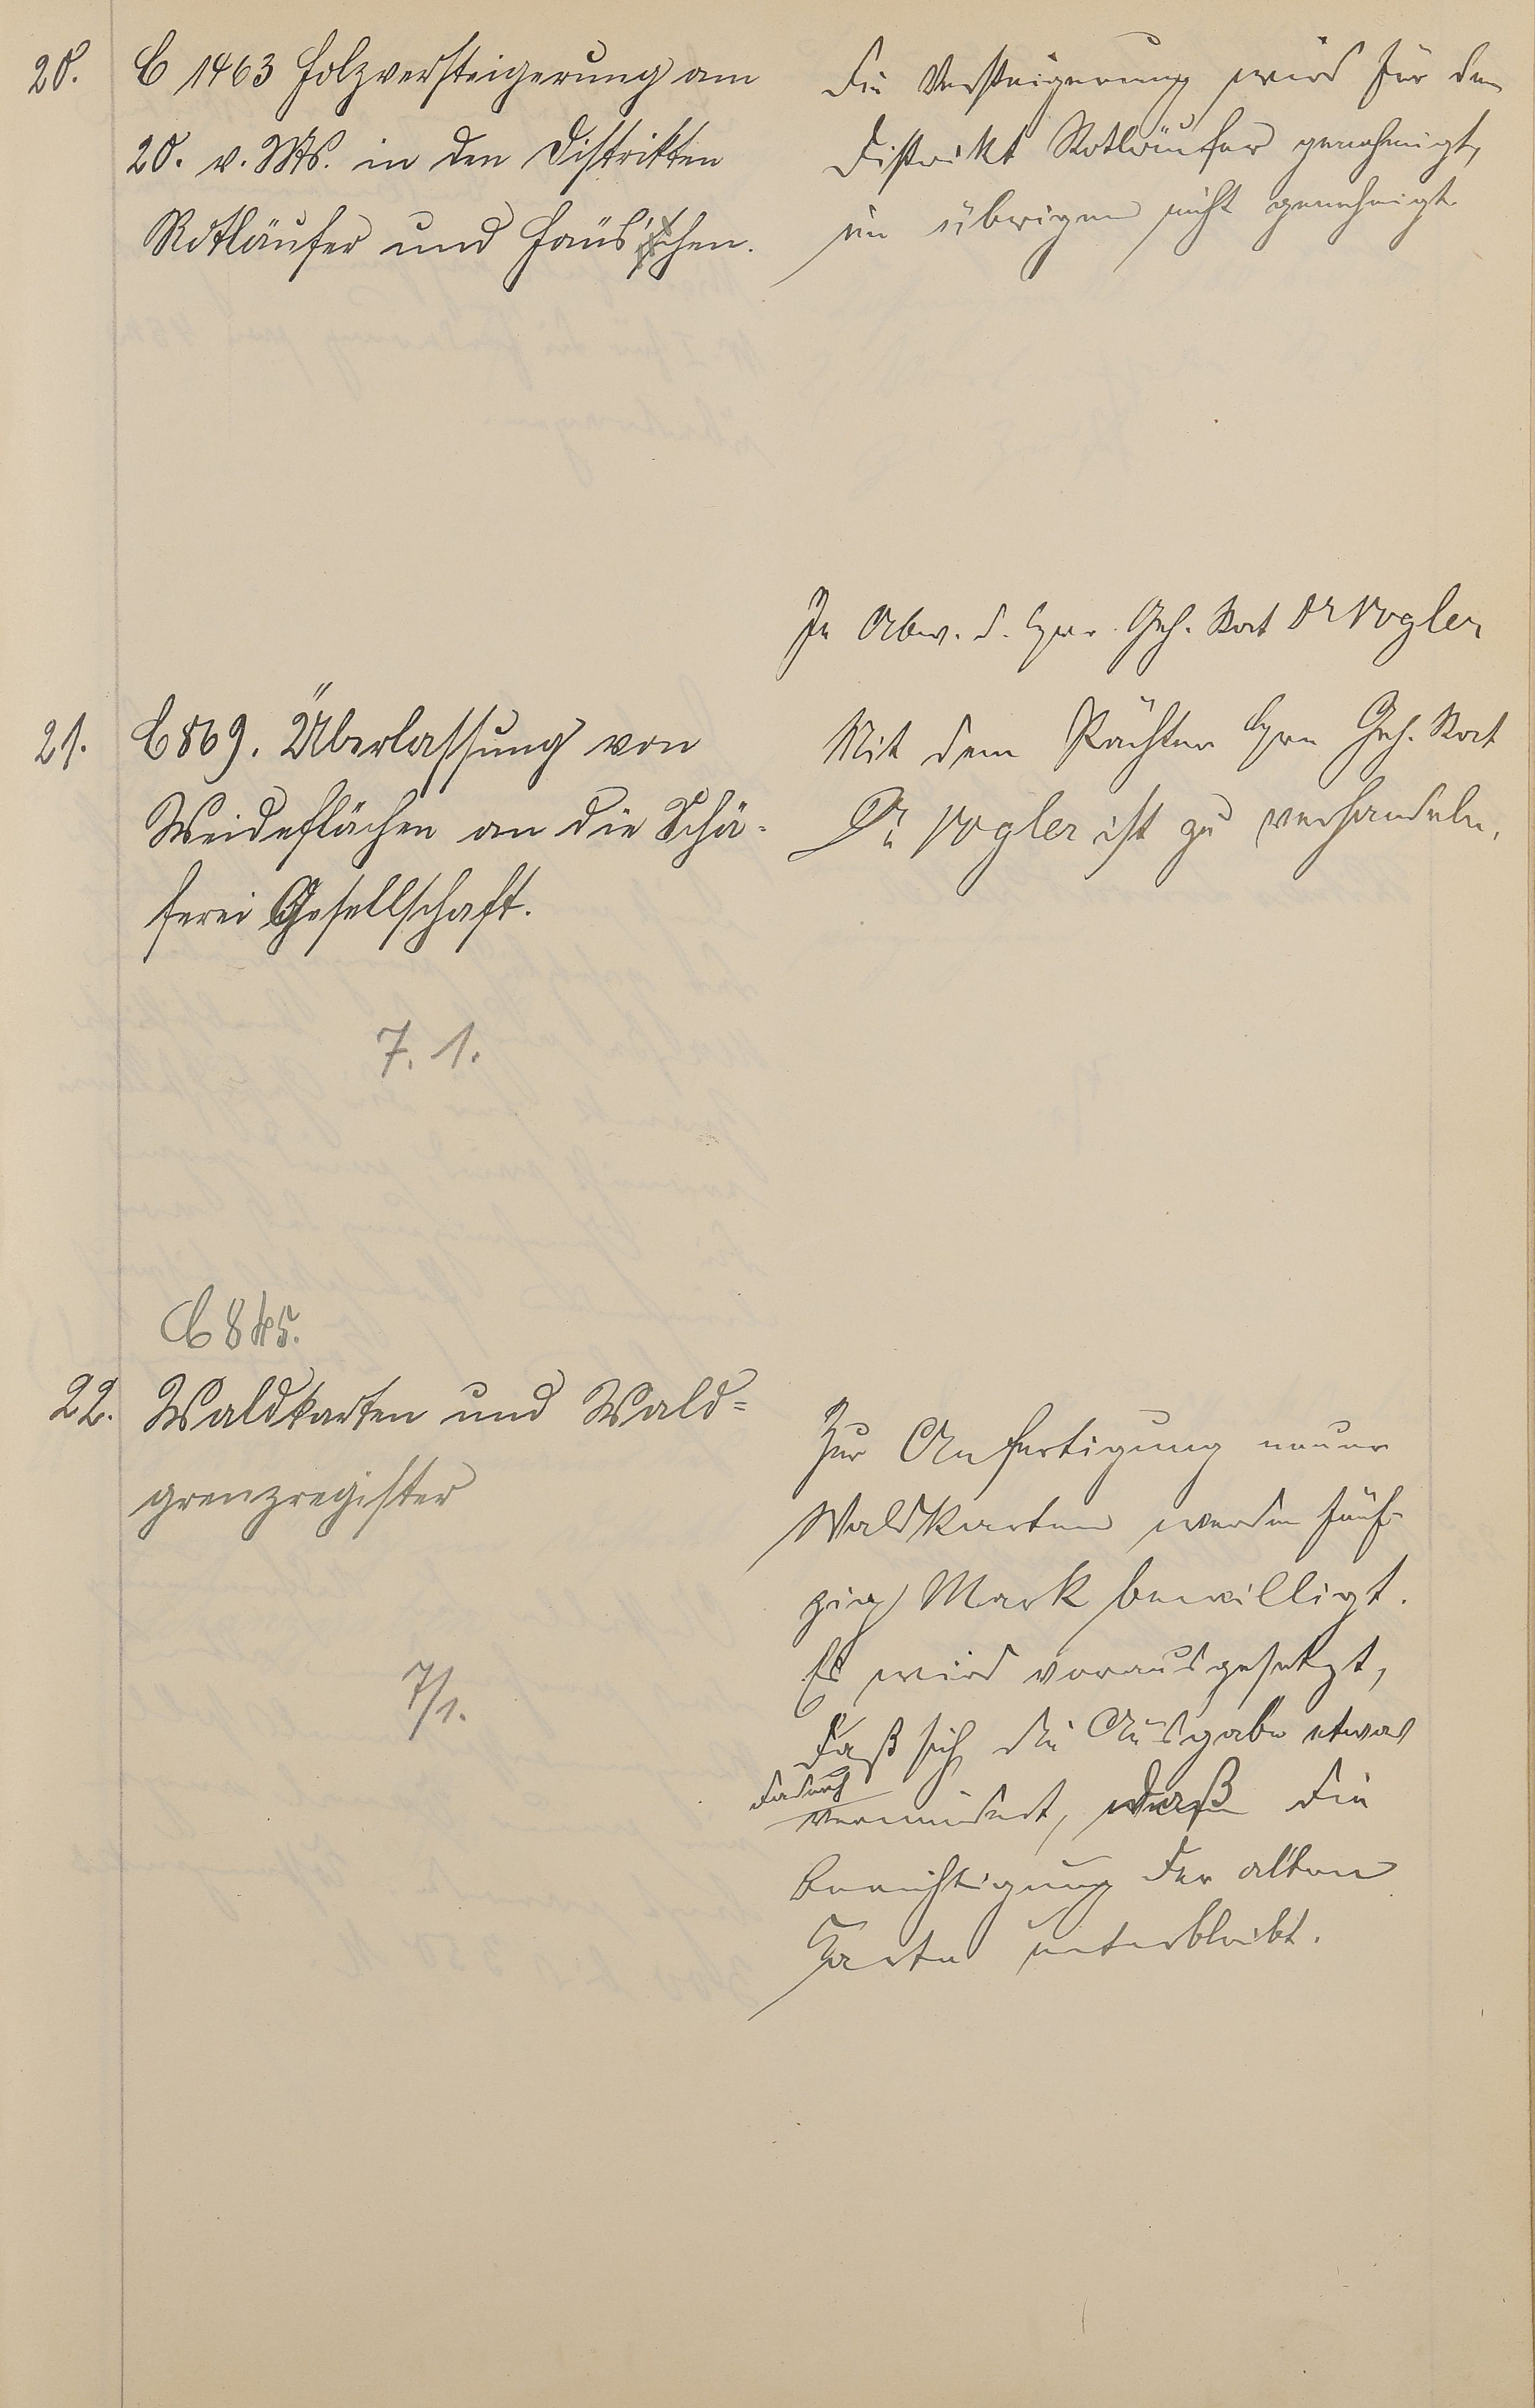 20.
C 1463 Holzversteigerung am
20. v. Mts. in den Distrikten
Rotläufer und Häuschen.
Die Versteigerung wird für den
Distrikt Rotläufer genehmigt,
im übrigen nicht genehmigt
In Abw. d. Hrn. Geh. Rat Dr Vogler
21.
C 869. Überlassung von
Weideflächen an die Schä-
ferei Gesellschaft.
7. 1.
Mit dem Pächter Hrn Geh. Rat
Dr. Vogler ist zu verhandeln.
C 845.
22.
Waldkarten und Wald=
grenzregister
7/1.
Zur Anfertigung neuer
Waldkarten werden fünf-
zig Mark bewilligt.
Es wird vorausgesetzt,
daß sich die Ausgabe etwas
dadurch
vermindert, daß die
Berichtigung der alten
Karte unterbleibt.